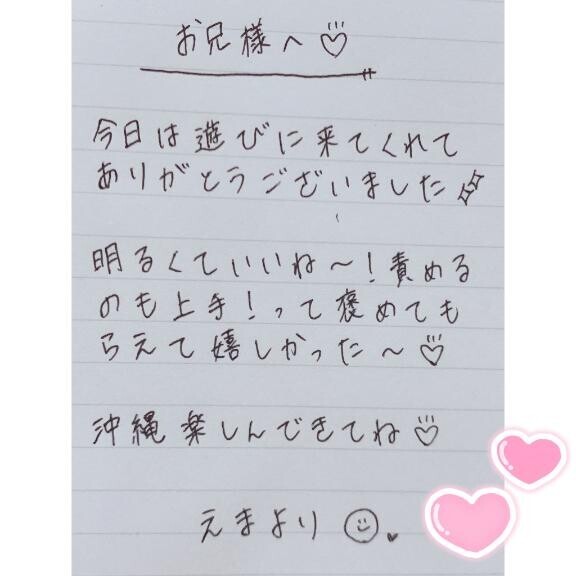 お兄様へ♡
今日は遊びに来てくれて
ありがとうございました✨
明るくていいね〜！責める
のも上手！って褒めても
らえて嬉しかった〜♡
沖縄楽しんできてね♡
えまより☺♥